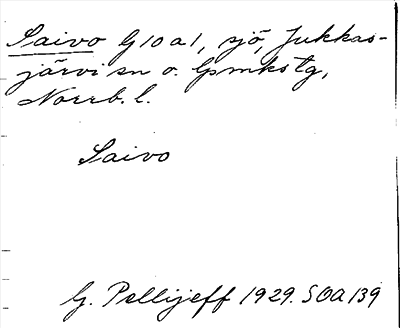 Saivo G10a1, sjö, Jukkas-
järvi sn o. lpmkstg,
Norrb. l.
Saivo
G. Pellijeff 1929. SOA 139